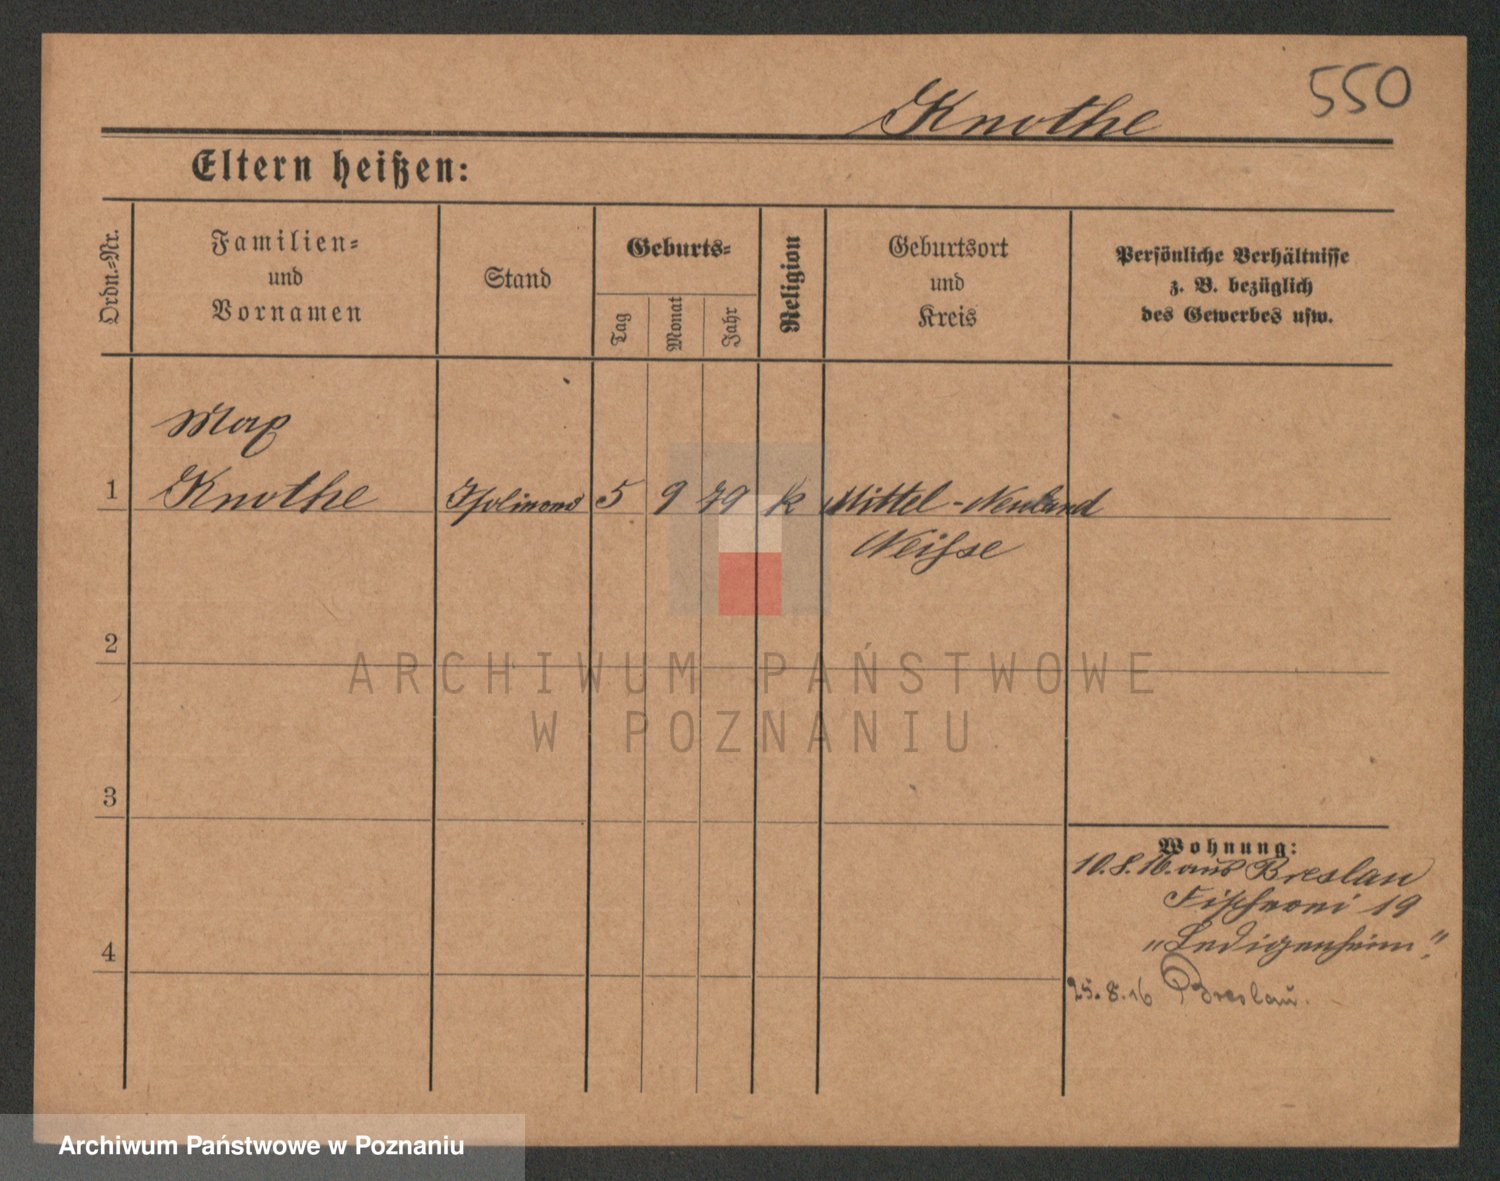 550
Knothe
Eltern heißen:
Ordn.-Nr.
Familien-
und
Vornamen
Stand
Geburts-
Tag
Monat
Jahr
Religion
Geburtsort
und
Kreis
Persönliche Verhältnisse
z. B. bezüglich
des Gewerbes usw.
Max
1 Knothe 5 9 79 k Mittel-Neuland
Neisse
2
3
4
Wohnung:
10.8.16. aus Breslau
Fischerei 19
"Ledigenheim".
25.8.16 Breslau.
ARCHIWUM PAŃSTWOWE
W POZNANIU
Archiwum Państwowe w Poznaniu